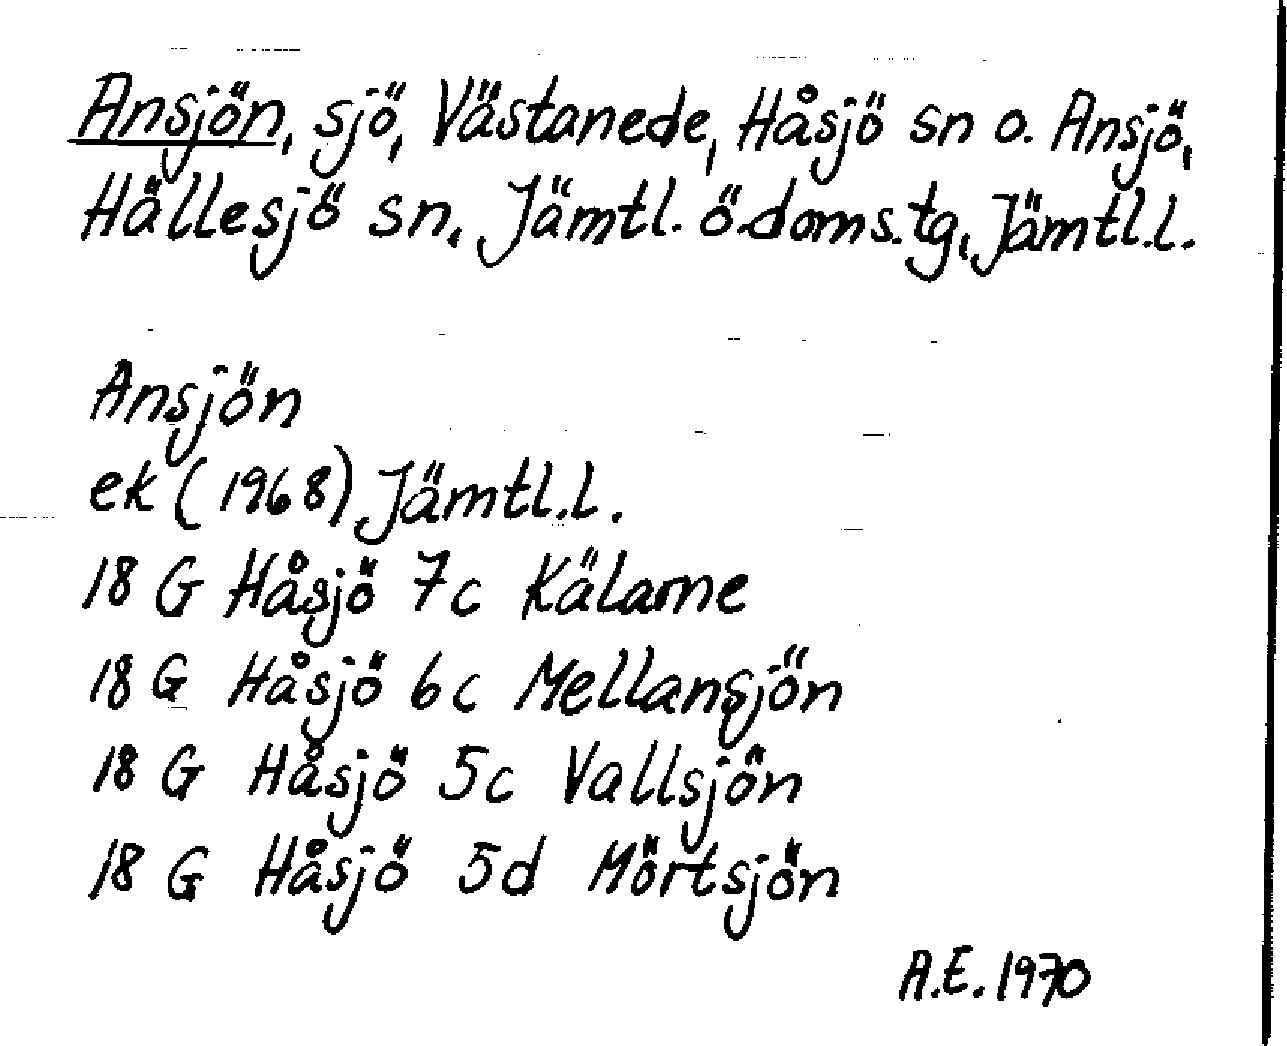 Ansjön, sjö, Västanede, Håsjö sn o. Ansjö,
Hällesjö sn, Jämtl. ö.doms.tg, Jämtl.l.
Ansjön
ek (1968) Jämtl.l.
18 G Håsjö 7c Kälarne
18 G Håsjö 6c Mellansjön
18 G Håsjö 5c Vallsjön
18 G Håsjö 5d Mörtsjön
A.E. 1970